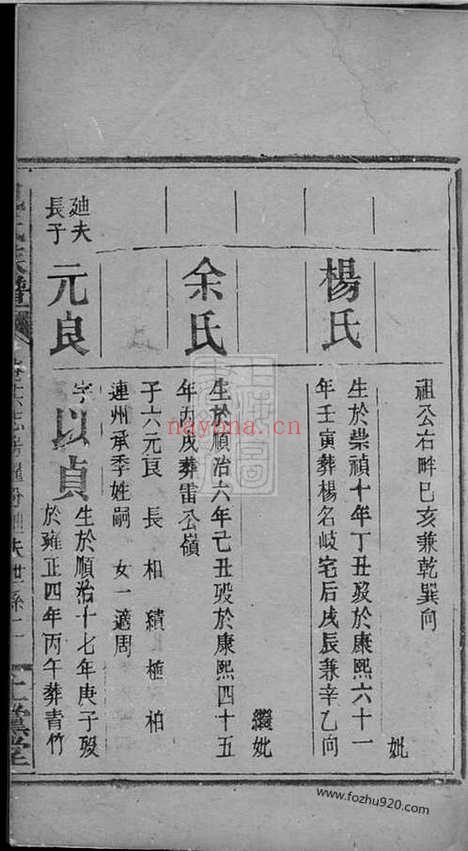 祖公右畔巳亥兼乾巽向
妣
楊氏
生於崇禎十年丁丑歿於康熙六十一
年壬寅葬楊名岐宅后戌辰兼辛乙向
繼妣
余氏
生於順治六年己丑歿於康熙四十五
年丙戌葬雷公嶺
子六元良 長 相 績 植 柏
連州承季姓嗣 女一適周
廸夫
長子
元良
字以貞
生於順治十七年庚子歿
於雍正四年丙午葬青竹
上黨堂
nayona.cn
www.fozhu920.com